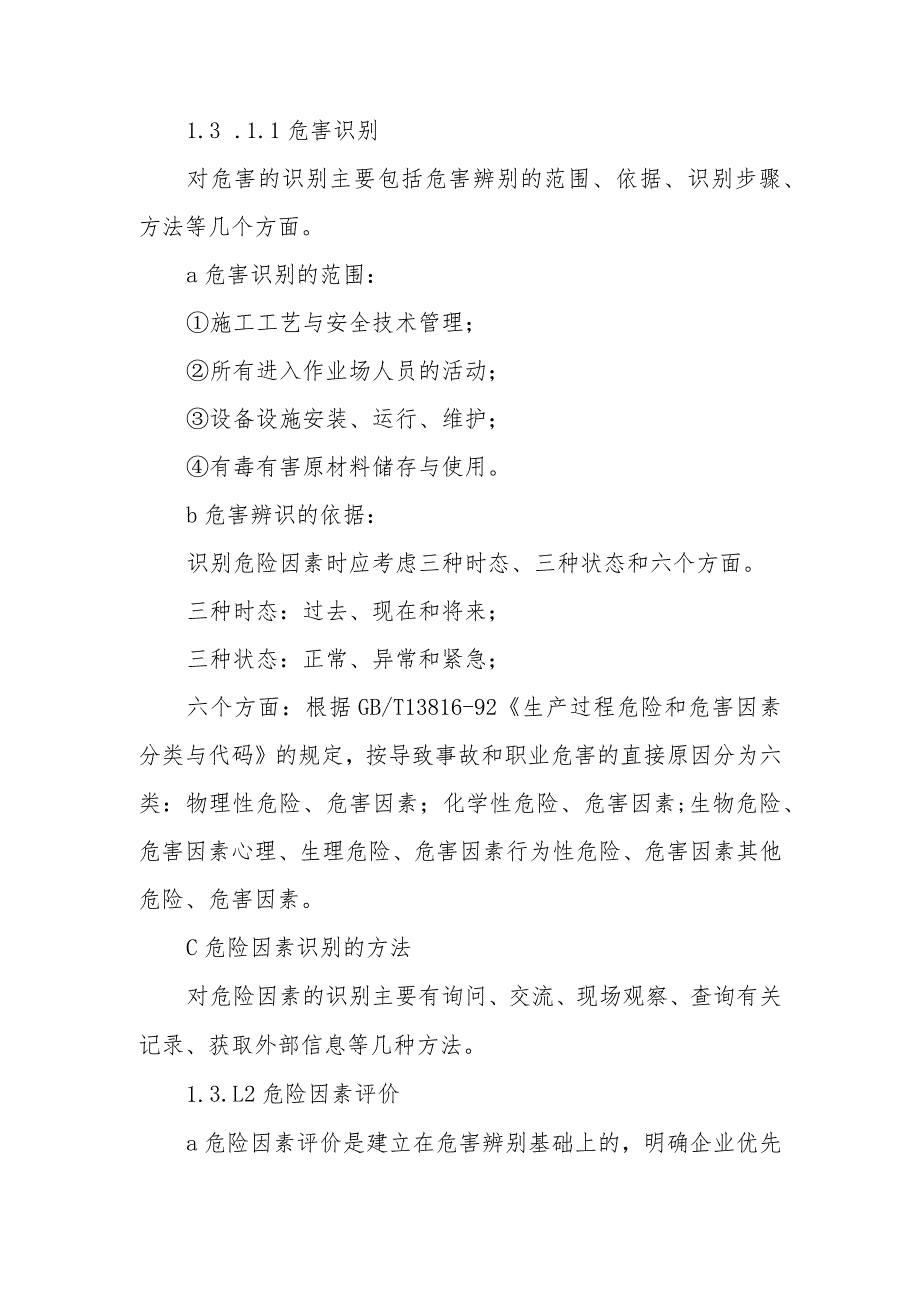 1.3 .1.1危害识别
对危害的识别主要包括危害辨别的范围、依据、识别步骤、
方法等几个方面。
a危害识别的范围：
①施工工艺与安全技术管理；
②所有进入作业场人员的活动；
③设备设施安装、运行、维护；
④有毒有害原材料储存与使用。
b危害辨识的依据：
识别危险因素时应考虑三种时态、三种状态和六个方面。
三种时态：过去、现在和将来；
三种状态：正常、异常和紧急；
六个方面：根据GB/T13816-92《生产过程危险和危害因素
分类与代码》的规定，按导致事故和职业危害的直接原因分为六
类：物理性危险、危害因素；化学性危险、危害因素;生物危险、
危害因素心理、生理危险、危害因素行为性危险、危害因素其他
危险、危害因素。
C危险因素识别的方法
对危险因素的识别主要有询问、交流、现场观察、查询有关
记录、获取外部信息等几种方法。
1.3.L2危险因素评价
a危险因素评价是建立在危害辨别基础上的，明确企业优先